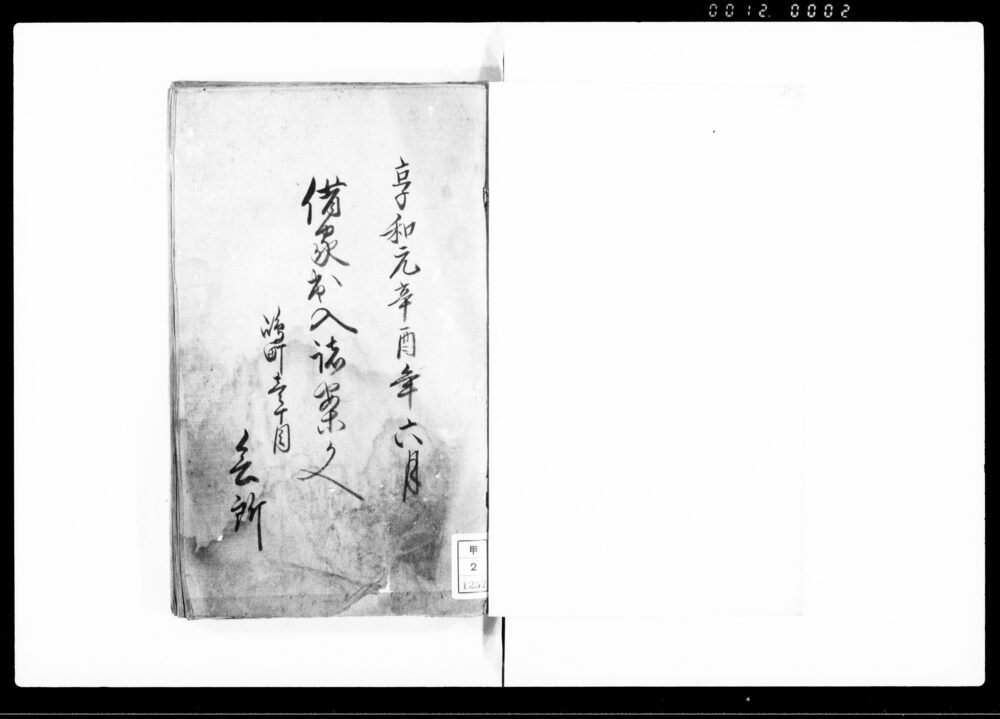 0012. 0002
享和元辛酉年六月
借家出入諸案文
鴻町壱丁目
会所
甲
2
1252